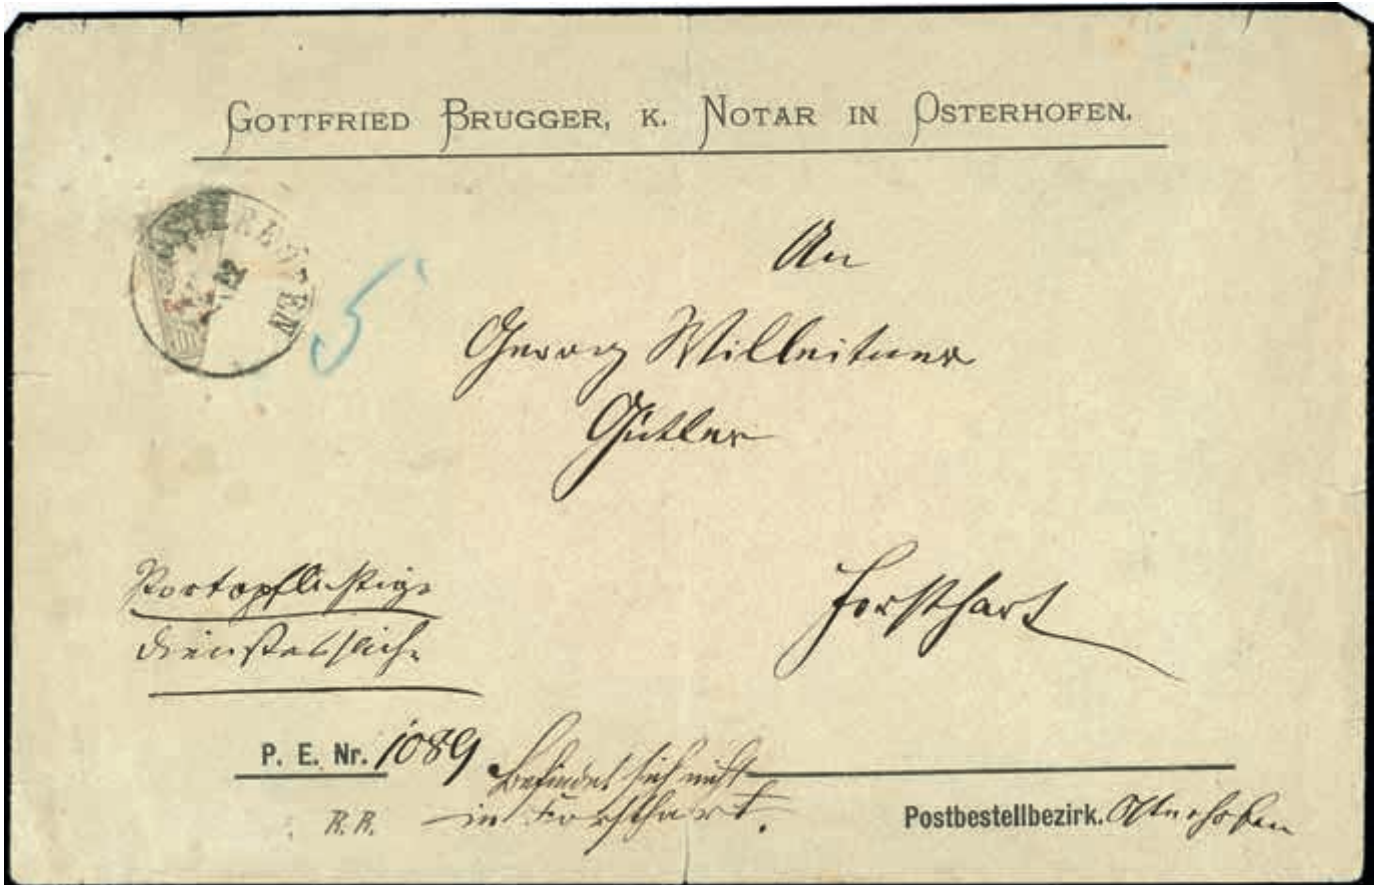 GOTTFRIED BRUGGER, K. NOTAR IN OSTERHOFEN.
12
5
An
Georg Willeitner
Gütler
Forsthart
Portopflichtige
Dienstessache
P. E. Nr. 1089
Befindet sich nicht
in Forsthart.
R. R.
Postbestellbezirk. Osterhofen